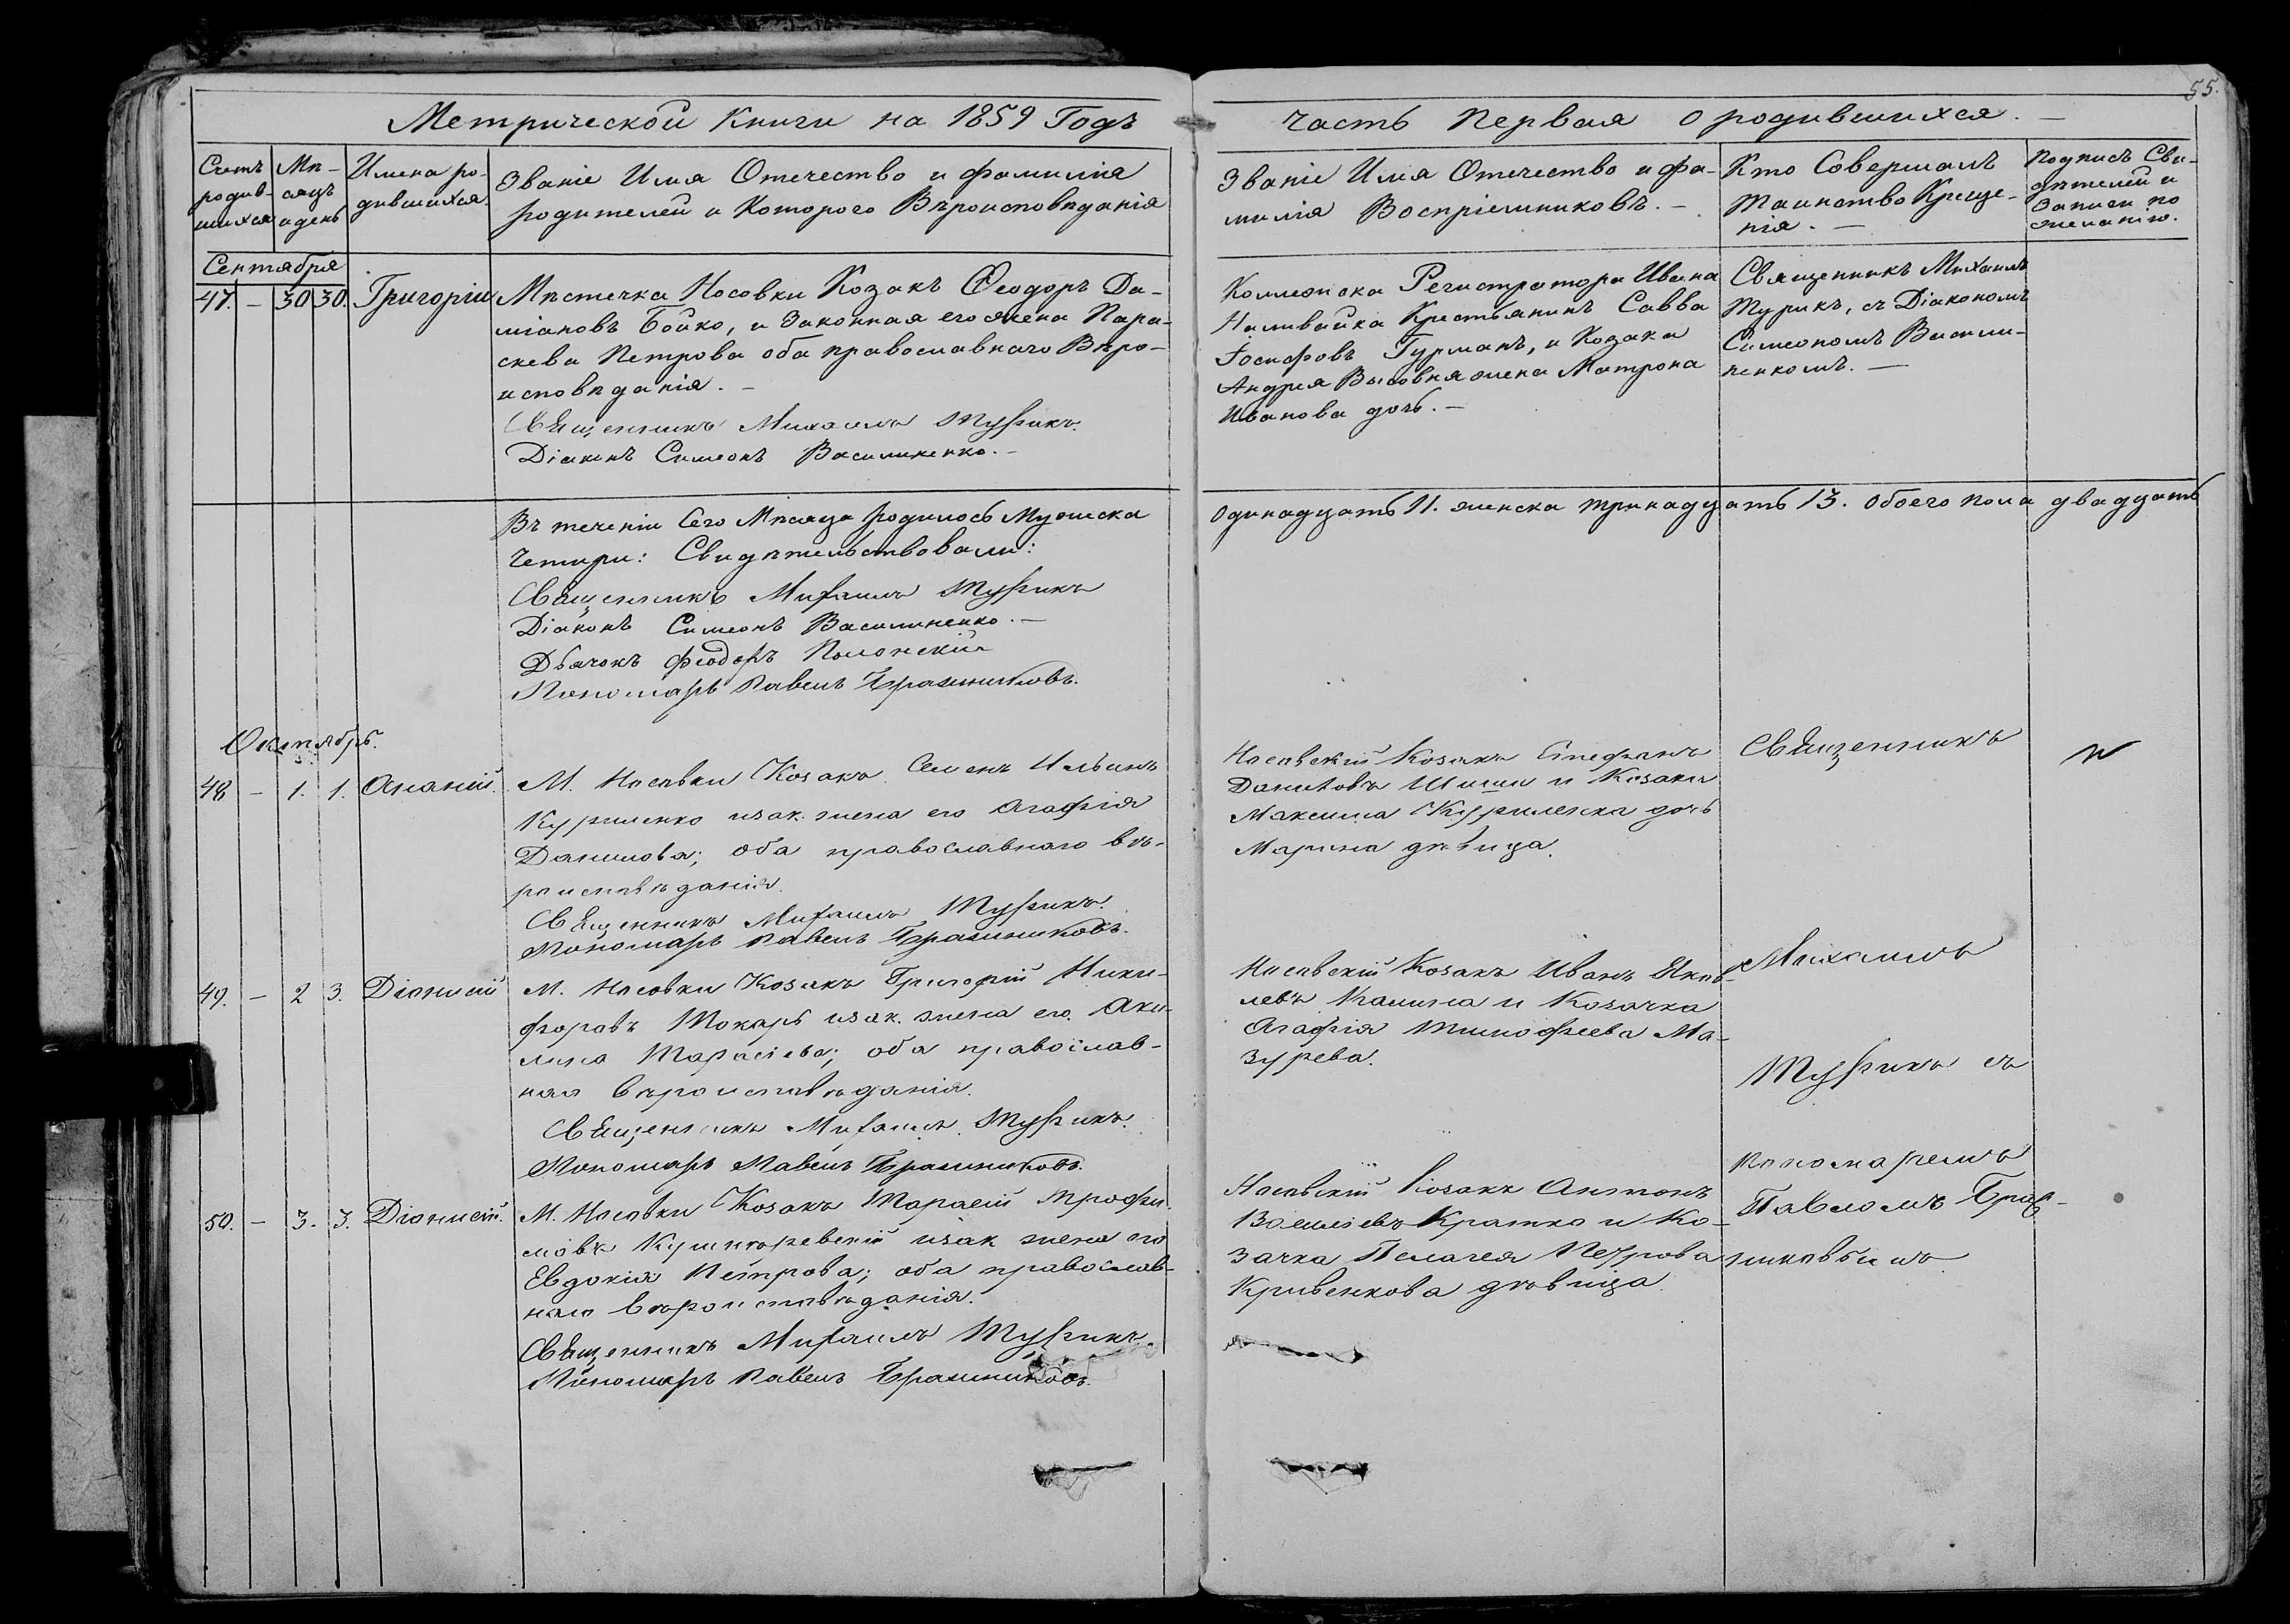 55.
Метрической Книги на 1859 Годъ
Часть Первая О родившихся. —
Счетъ
родив-
шихся
Мѣ-
сяцъ
и день
Имена ро-
дившихся.
Званіе Имя Отечество и фамилія
родителей и Которого Вѣроисповѣданія
Званіе Имя Отечество и фа-
милія Воспріемниковъ. —
Кто Совершалъ
Таинство Креще-
нія. —
Подпись Сви-
дѣтелей и
Записи по
желанію.
Сентября
47. — 30 30. Григорій
Мѣстечка Носовки Козакъ Ѳеодоръ Да-
міановъ Бойко, и Законная его жена Пара-
скева Петрова оба православнаго Вѣро-
исповѣданія. —
Священникъ Михаилъ Турикъ.
Діаконъ Симеонъ Василиненко. —
Коллежска Регистратора Ивана
Наливайка Крестьянинъ Савва
Іосифовъ Гурманъ, и Козака
Андрея Высовня жена Матрона
Иванова дочь. —
Священникъ Михаилъ
Турикъ, съ Діакономъ
Симеономъ Васили-
ненкомъ. —
Въ теченіи Сего Мѣсяца родилось Мужеска
Одинадцать 11. женска тринадцать 13. Обоего пола двадцать
Четыри: Свидѣтельствовали:
Священникъ Михаилъ Турикъ
Діаконъ Симеонъ Василиненко. —
Дьячокъ Феодоръ Полонскій
Пономарь Павелъ Бражниковъ.
Октябрь.
48 — 1. 1. Ананій.
М. Носовки Козакъ Семенъ Ильинъ
Куриленко и зак. жена его Агафія
Данилова; оба православнаго вѣ-
роисповѣданія.
Священникъ Михаилъ Турикъ.
Пономарь Павелъ Бражниковъ.
Носовскій Козакъ Стефанъ
Даниловъ Шиш и Козака
Максима Куриленка дочь
Марина дѣвица.
Священникъ
49. — 2 3. Діонисій
М. Носовки Козакъ Григорій Ники-
форовъ Токарь и зак. жена его Аки-
лина Тарасіева; оба православ-
наго вѣроисповѣданія.
Священникъ Михаилъ Турикъ.
Пономарь Павелъ Бражниковъ.
Носовскій Козакъ Иванъ Яков-
левъ Калина и Козачка
Агафія Тимофеева Ма-
зурева.
Михаилъ
Турикъ съ
50. — 3. 3. Діонисій.
М. Носовки Козакъ Тарасій Трофи-
мовъ и зак жена его
Евдокія Петрова; оба православ-
наго вѣроисповѣданія.
Священникъ Михаилъ Турикъ.
Пономарь Павелъ Бражниковъ.
Носовскій Козакъ Антонъ
Василіевъ Кратко и Ко-
зачка Пелагея Петрова
Кривенкова дѣвица.
пономаремъ
Павломъ Браж-
никовымъ